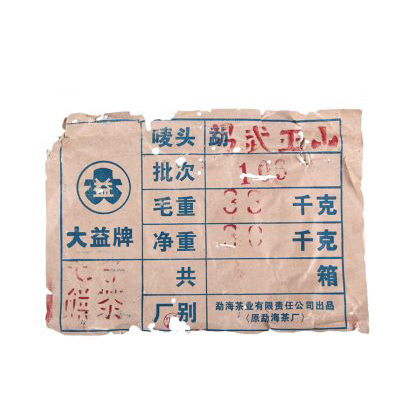 唛头 勐 易武正山
批次 103
毛重 33 千克
净重 30 千克
共 箱
厂别
勐海茶业有限责任公司出品
〈原勐海茶厂〉
益
大益牌
饼茶